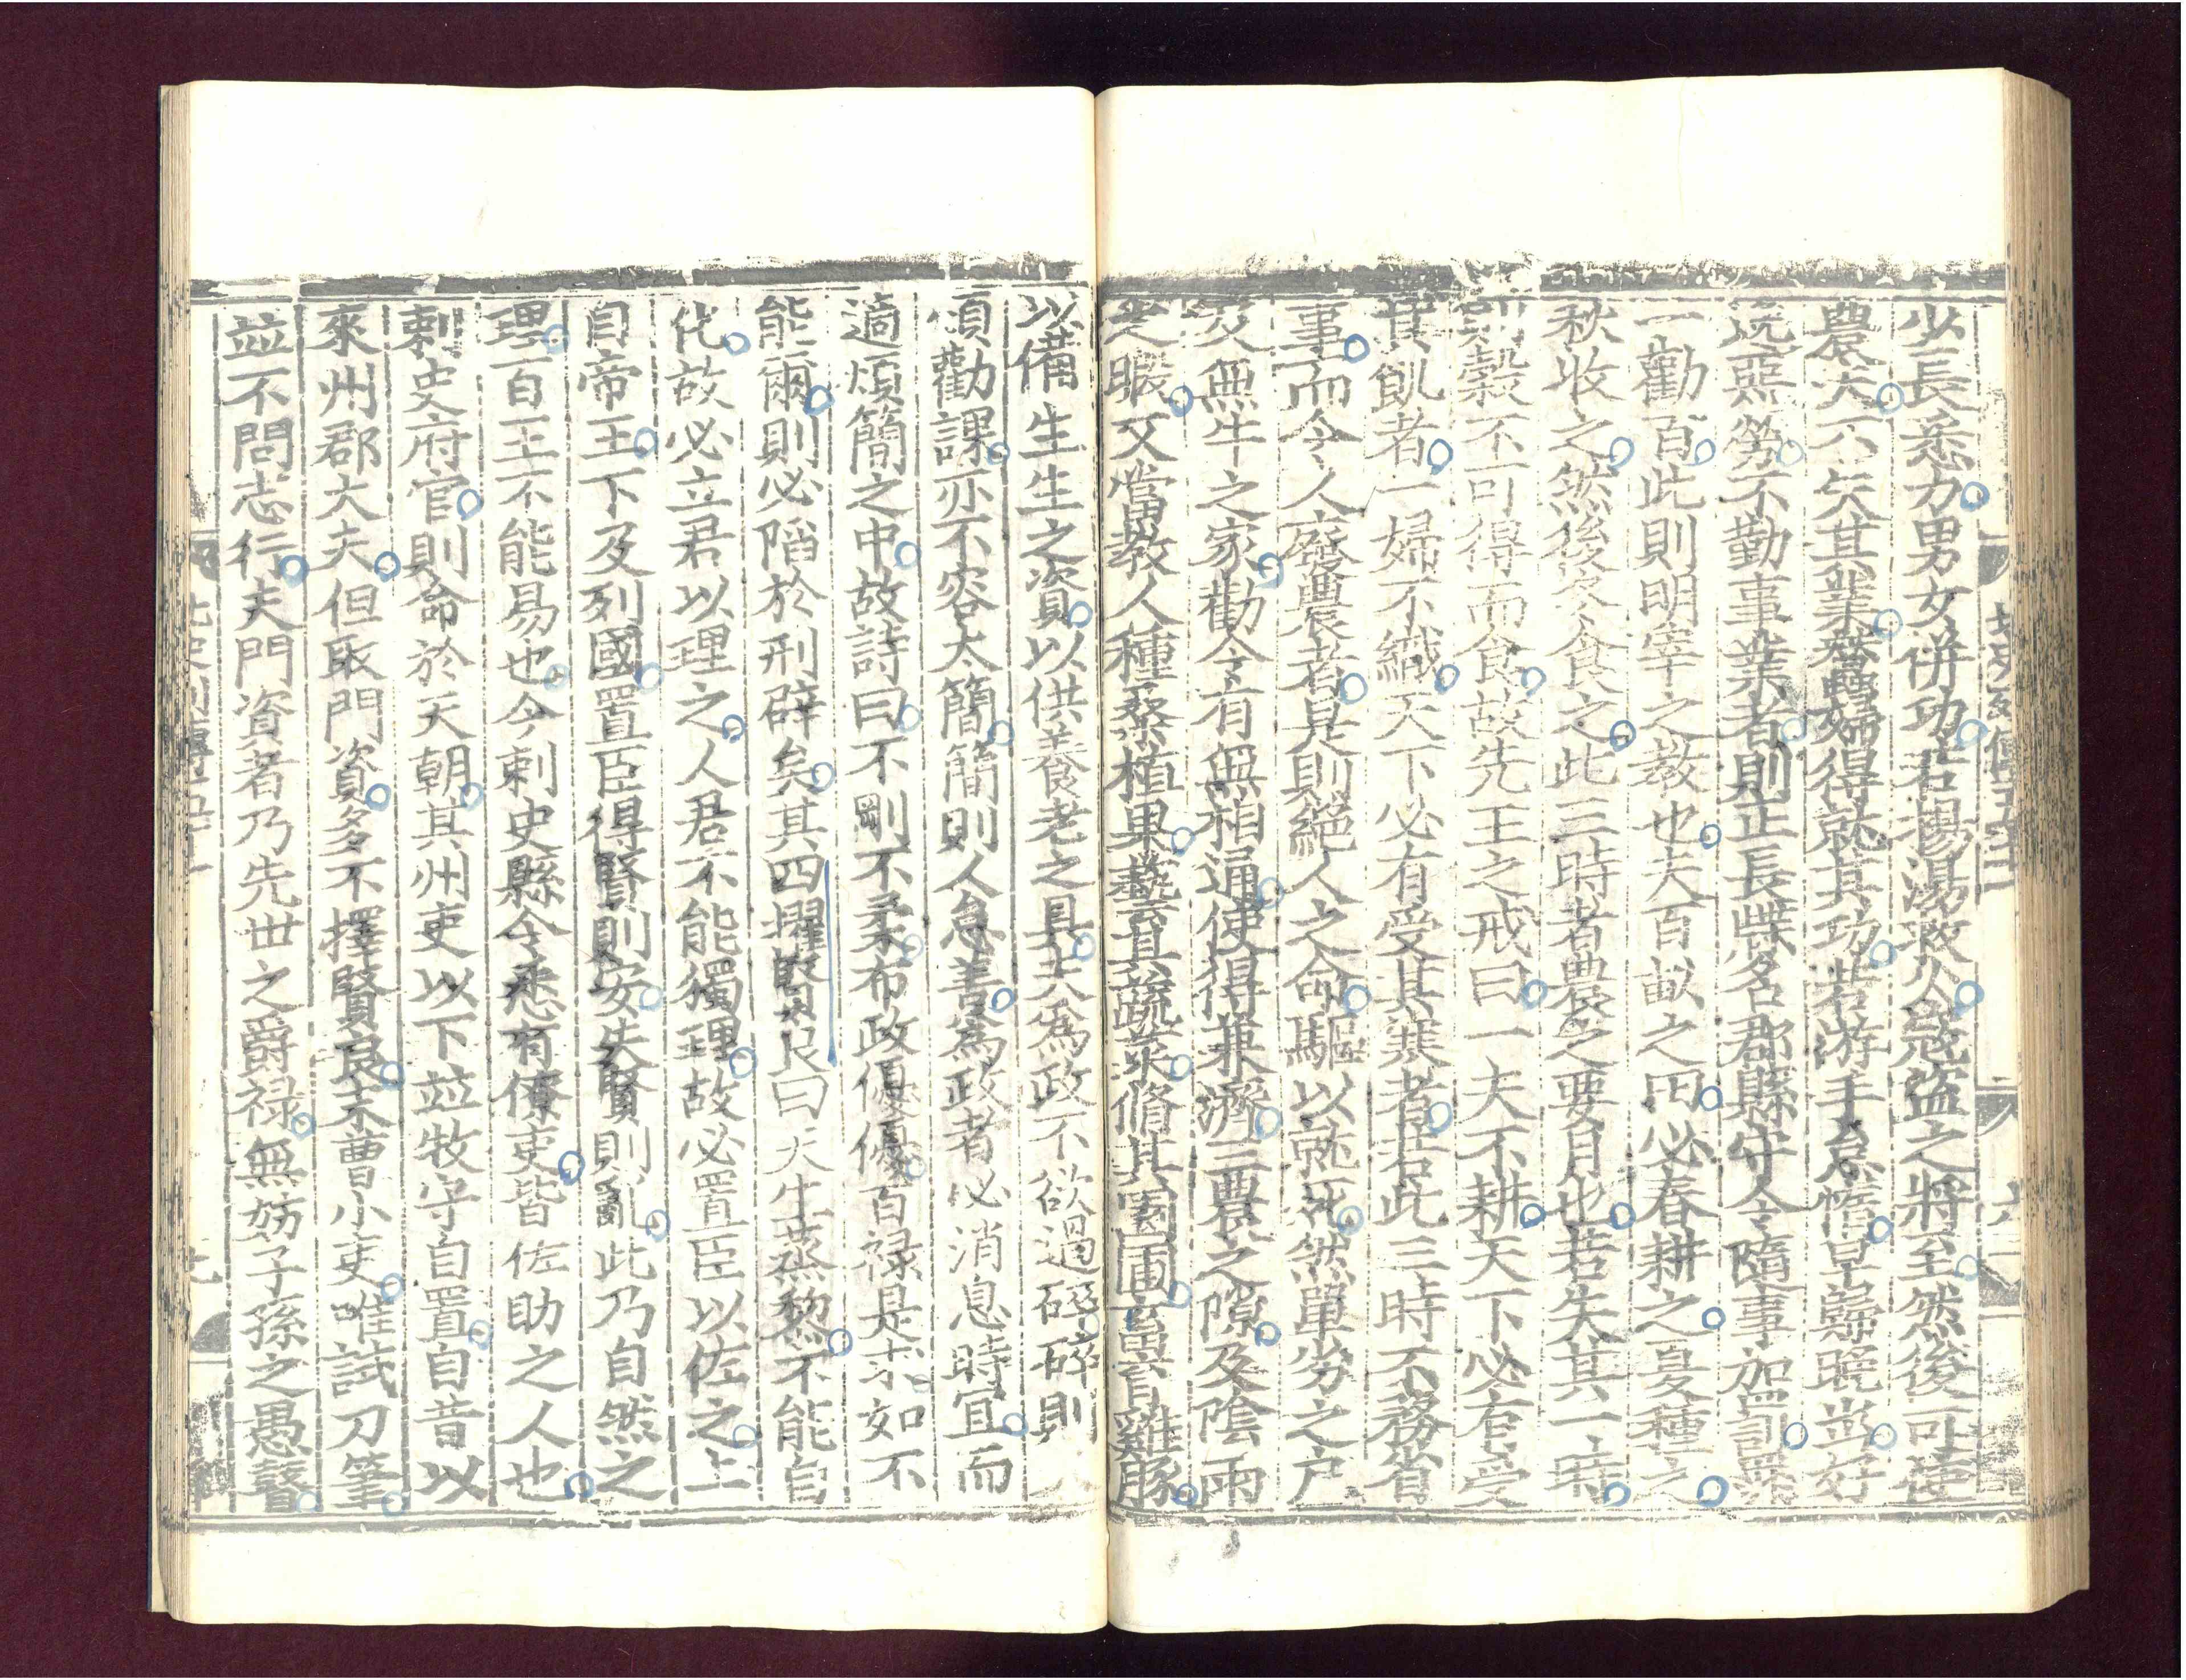 少長悉力男女併功若揚湯救火冦盜之將至然後可使
農夫不失其業蠶婦得就其功若游手怠惰早歸晚出好
逸惡勞不勤事業者則正長牒名郡縣守令隨事加罰罪
一勸百此則明宰之教也夫百畝之田必春耕之夏種之
秋收之然後冬食之此三時者農之要月也若失其一時
則穀不可得而食故先王之戒曰一夫不耕天下必有受
其飢者一婦不織天下必有受其寒者若此三時不務省
事而令人廢農者是則絕人之命驅以就死然單劣之户
及無牛之家勸令有無相通使得兼濟三農之隙及陰雨
之暇又當教人種桑植果藝其蔬菜脩其園圃畜育雞豚
以備生生之資以供養老之具夫爲政不欲過碎碎則
煩勸課亦不容太簡簡則人怠善爲政者必消息時宜而
適煩簡之中故詩曰不剛不柔布政優優百禄是求如不
能爾則必陷於刑辟矣其四擢賢良曰天生蒸黎不能自
化故必立君以理之人君不能獨理故必置臣以佐之上
自帝王下及列國置臣得賢則安失賢則亂此乃自然之
理百王不能易也今刺史縣令悉有僚吏皆佐助之人也
刺史府官則命於天朝其州吏以下並牧守自置自昔以
來州郡大夫但取門資多不擇賢良末曹小吏唯試刀筆
並不問志行夫門資者乃先世之爵禄無妨子孫之愚瞽